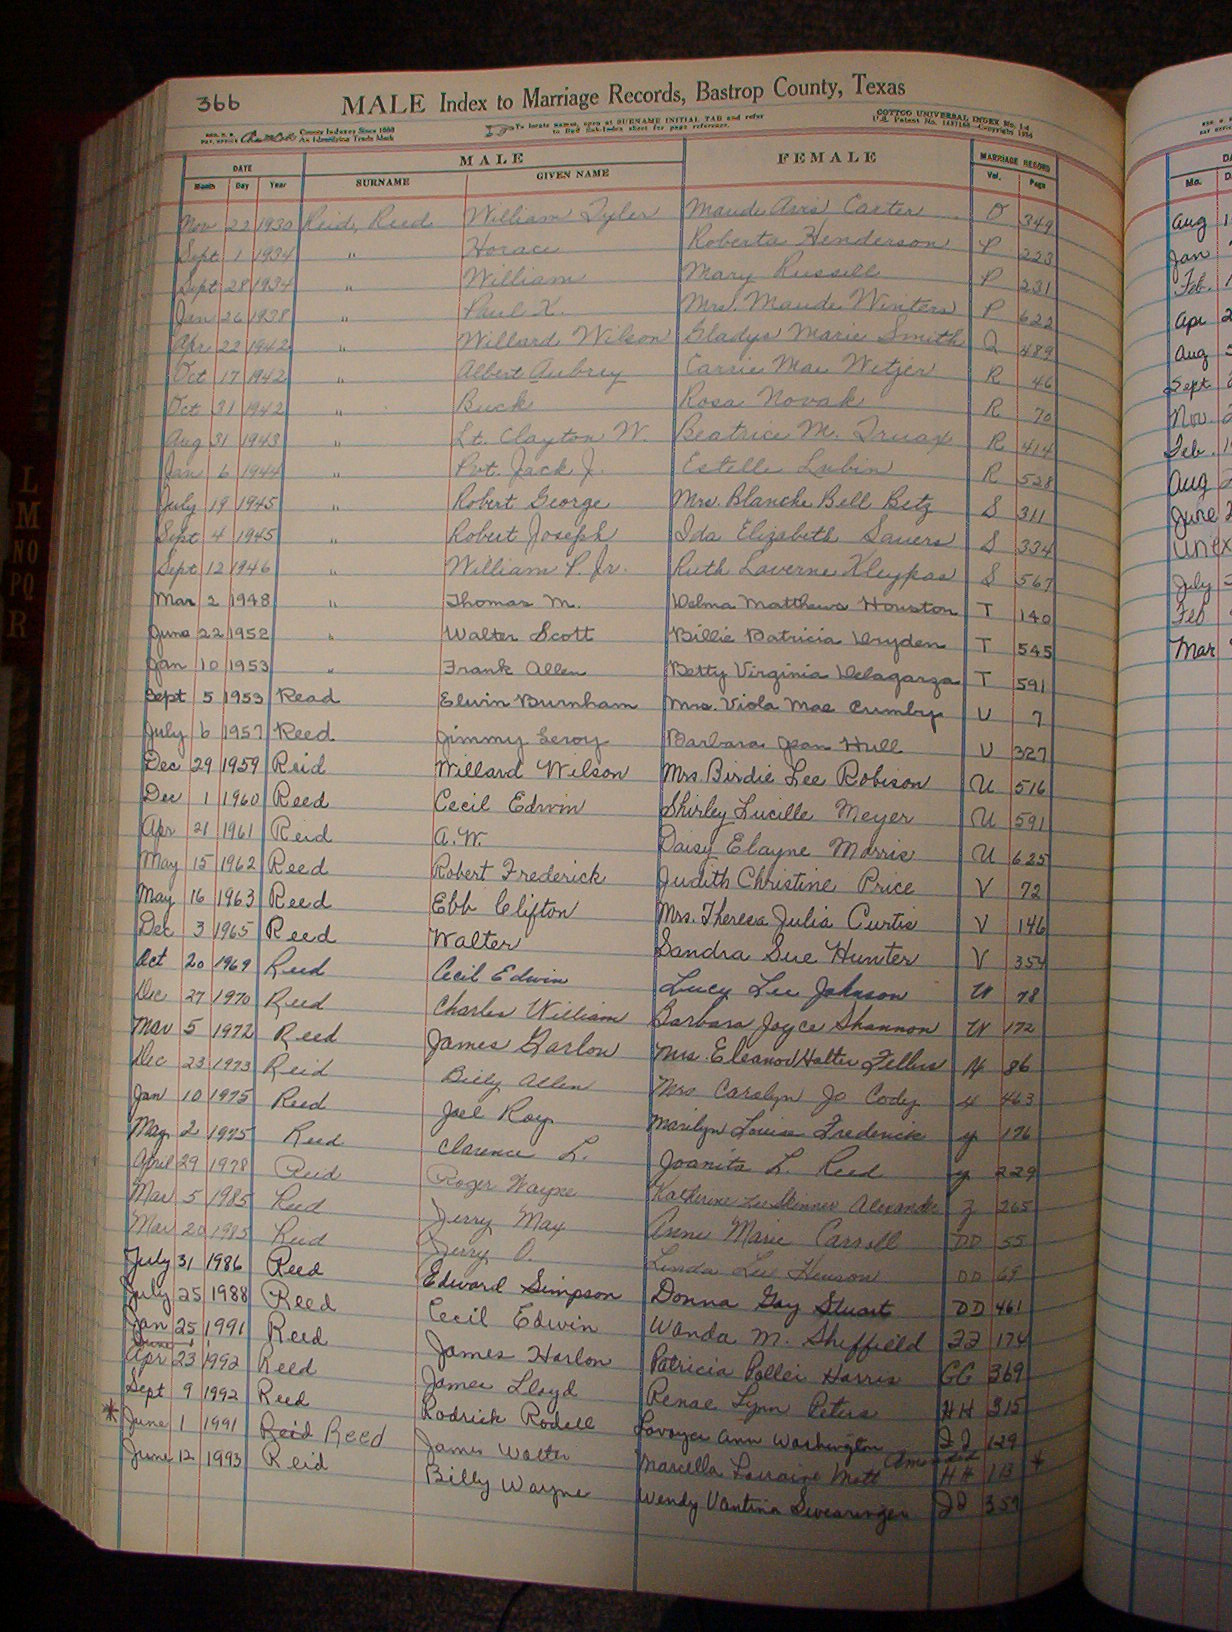 366
MALE Index to Marriage Records, Bastrop County, Texas
REG. U. S. PAT. OFFICE County Indexes Since 1888 An Identifying Trade Mark
To locate names, open at SURNAME INITIAL TAB and refer to Sub-Index sheet for page reference.
COTTCO UNIVERSAL INDEX No. 1-A U.S. Patent No. Copyright
DATE MALE FEMALE MARRIAGE RECORD
Month Day Year SURNAME GIVEN NAME Vol. Page
Nov 22 1930 Reid, Reed William Tyler Maude Avis Carter O 349
Sept 1 1934 " Horace Roberta Henderson P 223
Sept 28 1934 " William Mary Russell P 231
Jan 26 1938 " Paul X. Mrs. Maude Winters P 622
Apr 22 1942 " Willard Wilson Gladys Marie Smith Q 489
Oct 17 1942 " Albert Aubrey Carrie Mae Wetzer R 46
Oct 31 1942 " Buck Rosa Novak R 70
Aug 31 1943 " Lt. Clayton W. Beatrice M. Truax R 414
Jan 6 1944 " Pvt. Jack J. Estelle Lubin R 528
July 19 1945 " Robert George Mrs. Blanche Bell Betz S 311
Sept 4 1945 " Robert Joseph Ida Elizabeth Sauers S 334
Sept 12 1946 " William P. Jr. Ruth Laverne Kleypas S 567
Mar 2 1948 " Thomas M. Velma Matthews Houston T 140
June 22 1952 " Walter Scott Billie Patricia Dryden T 545
Jan 10 1953 " Frank Allen Betty Virginia Delagarza T 591
Sept 5 1953 Read Elwin Burnham Mrs. Viola Mae Crumby U 7
July 6 1957 Reed Jimmy Leroy Barbara Jean Hull U 327
Dec 29 1959 Reid Willard Wilson Mrs. Birdie Lee Robison U 516
Dec 1 1960 Reed Cecil Edwin Shirley Lucille Meyer U 591
Apr 21 1961 Reid A.W. Daisy Elayne Morris U 625
May 15 1962 Reed Robert Frederick Judith Christine Price V 72
May 16 1963 Reed Ebb Clifton Mrs. Theresa Julia Curtis V 146
Dec 3 1965 Reed Walter Sandra Sue Hunter V 354
Oct 20 1969 Reed Cecil Edwin Lucy Lee Johnson W 78
Dec 27 1970 Reed Charles William Barbara Joyce Shannon W 172
Mar 5 1972 Reed James Harlon Mrs. Eleanor Halter Fellers X 86
Dec 23 1973 Reid Billy Allen Mrs Carolyn Jo Cody X 463
Jan 10 1975 Reed Joel Roy Marilyn Louise Frederick Y 176
May 2 1975 Reed Clarence L. Joanita L. Reed Y 229
April 29 1978 Reid Roger Wayne Katherine Lee Skinner Alexander Z 265
Mar 5 1985 Reed Jerry Max Arene Marie Carroll DD 55
Mar 20 1985 Reid Jerry O. Linda Lee Henson DD 69
July 31 1986 Reed Edward Simpson Donna Gay Stuart DD 461
July 25 1988 Reed Cecil Edwin Wanda M. Sheffield 174
Jan 25 1991 Reed James Harlon Patricia Pollei Harris GG 369
June 1
Apr 23 1992 Reed James Lloyd Renae Lynn Peters HH 315
Sept 9 1992 Reed Rodrick Rodell Lavoyce Ann Washington 129
* June 1 1991 Reid Reed James Walter Marcella Lorraine Mott Amended HH 113 *
June 12 1993 Reid Billy Wayne Wendy Vantina Swearingen 359
L
M
NO
PQ
R
Mo.
Aug 1
Jan
Feb. 1
Apr 2
Aug 5
Sept 2
Nov. 2
Feb. 1
Aug 2
June 2
July 3
Feb
Mar